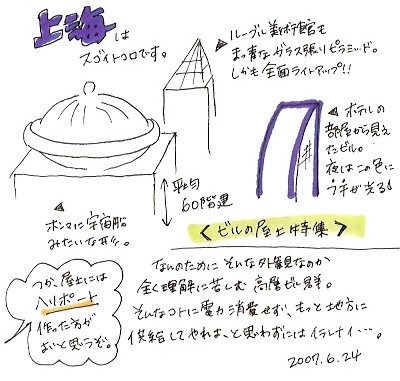 上海は
スゴイトコロです。
ルーブル美術館も
まっ青なガラス張りピラミッド。
しかも全面ライトアップ!!
ホテルの
部屋から見え
たビル。
夜はこの色に
フチが光る♪
平均
60階建
ホンマに宇宙船
みたいな形。
<ビルの屋上特集>
つか、屋上には
ヘリポート
作った方が
よいと思うぞ。
なんのために そんな外観なのか
全く理解に苦しむ 高層ビル群。
そんなコトに電力消費せず、もっと地方に
供給してやれよ、と思わずにはイラレナイ…。
2007.6.24